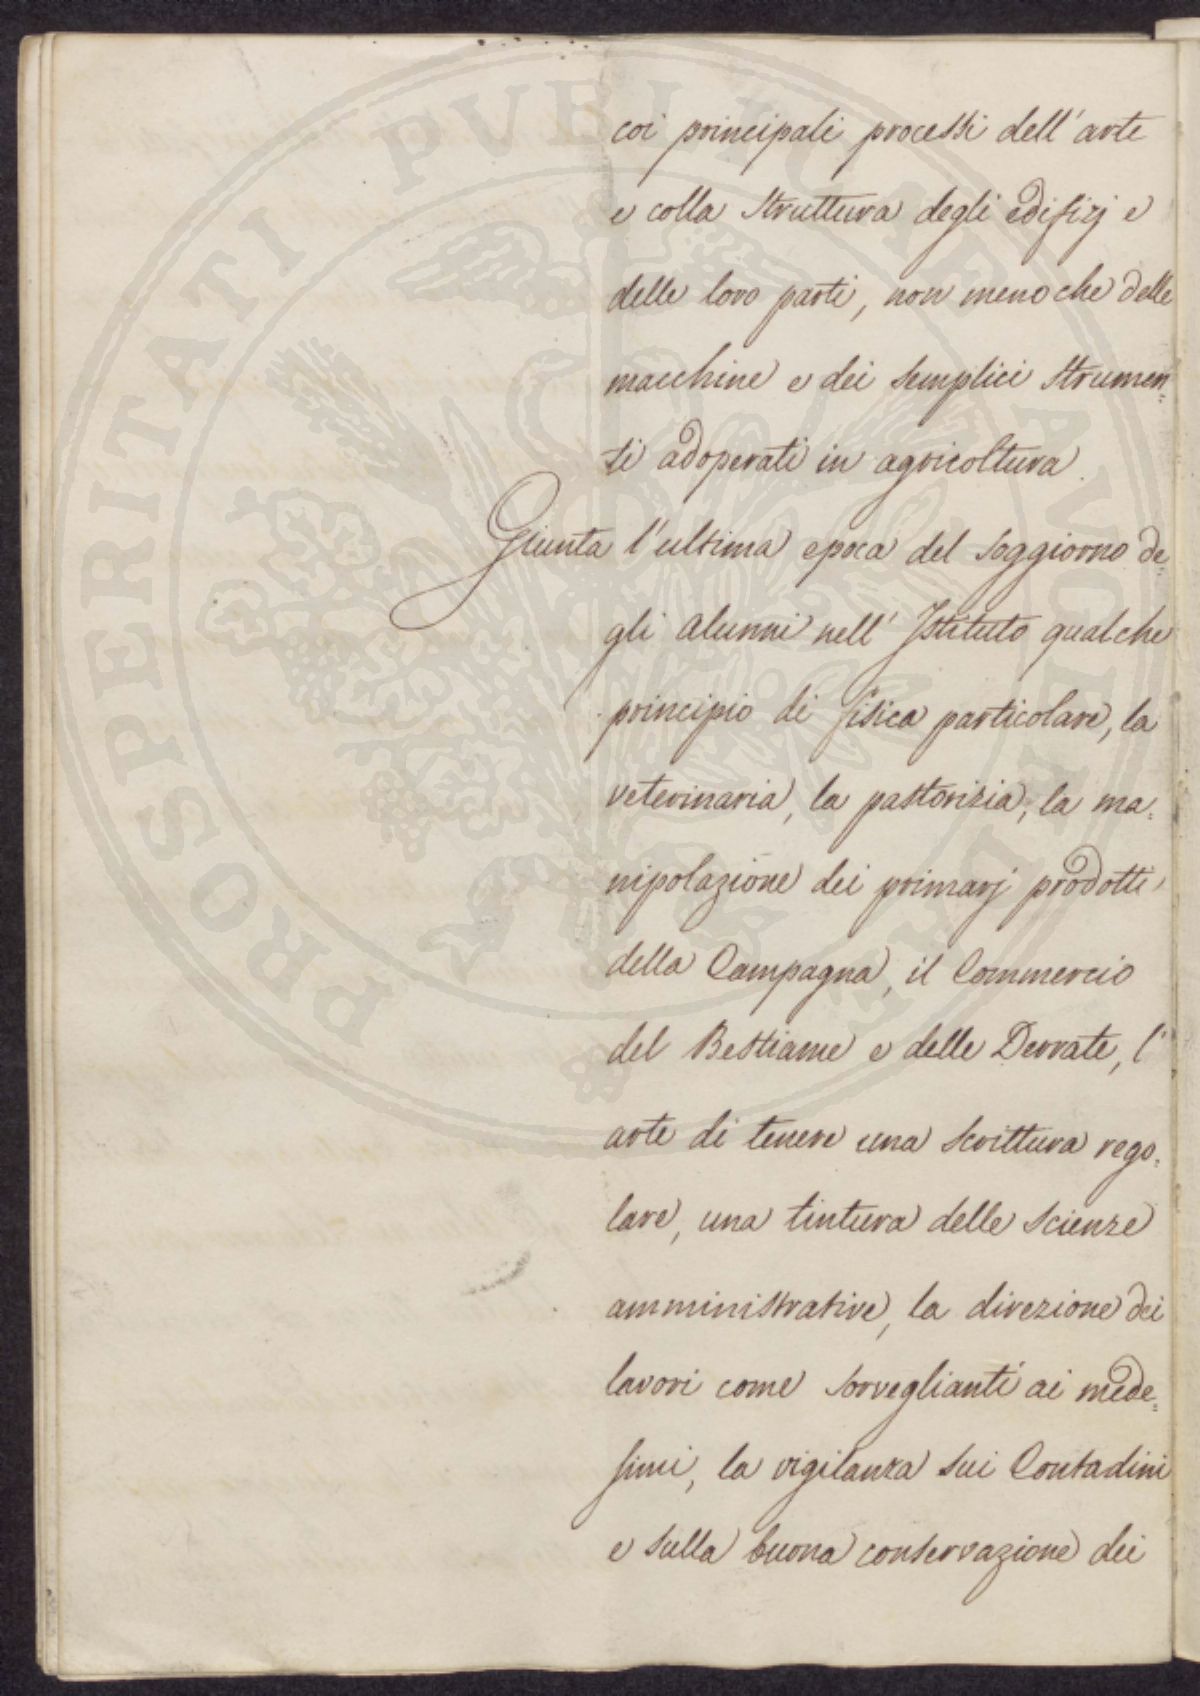 coi principali processi dell'arte
e colla struttura degli edifizj e
delle loro parti, non meno che delle
macchine e dei semplici strumen=
ti adoperati in agricoltura.
Giunta l'ultima epoca del soggiorno de=
gli alunni nell'Istituto qualche
principio di fisica particolare, la
veterinaria, la pastorizia, la ma=
nipolazione dei primarj prodotti
della Campagna, il Commercio
del Bestiame e delle Derrate, l'
arte di tenere una scrittura rego=
lare, una tintura delle scienze
amministrative, la direzione dei
lavori come sorveglianti ai mede=
simi, la vigilanza sui Contadini
e sulla buona conservazione dei
PROSPERITATI PVBLICAE AVGENDAE